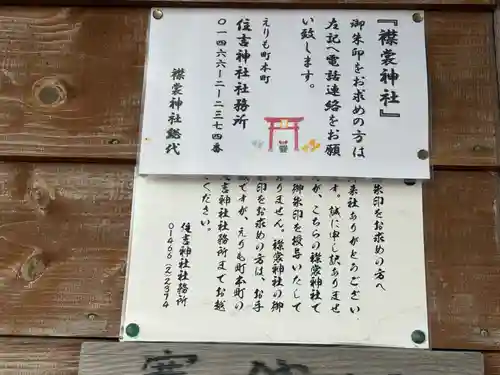 『襟裳神社』
御朱印をお求めの方は
左記へ電話連絡をお願
い致します。
えりも町本町
住吉神社社務所
〇一四六六ー二ー二三七四番
襟裳神社総代
朱印をお求めの方へ
の来社ありがとうござい
す。誠に申し訳ありませ
が、こちらの襟裳神社で
御朱印を授与いたして
りません。襟裳神社の御
朱印をお求めの方は、お手
ですが、えりも町本町の
吉神社社務所までお越
ください。
住吉神社社務所
01466(2)2374